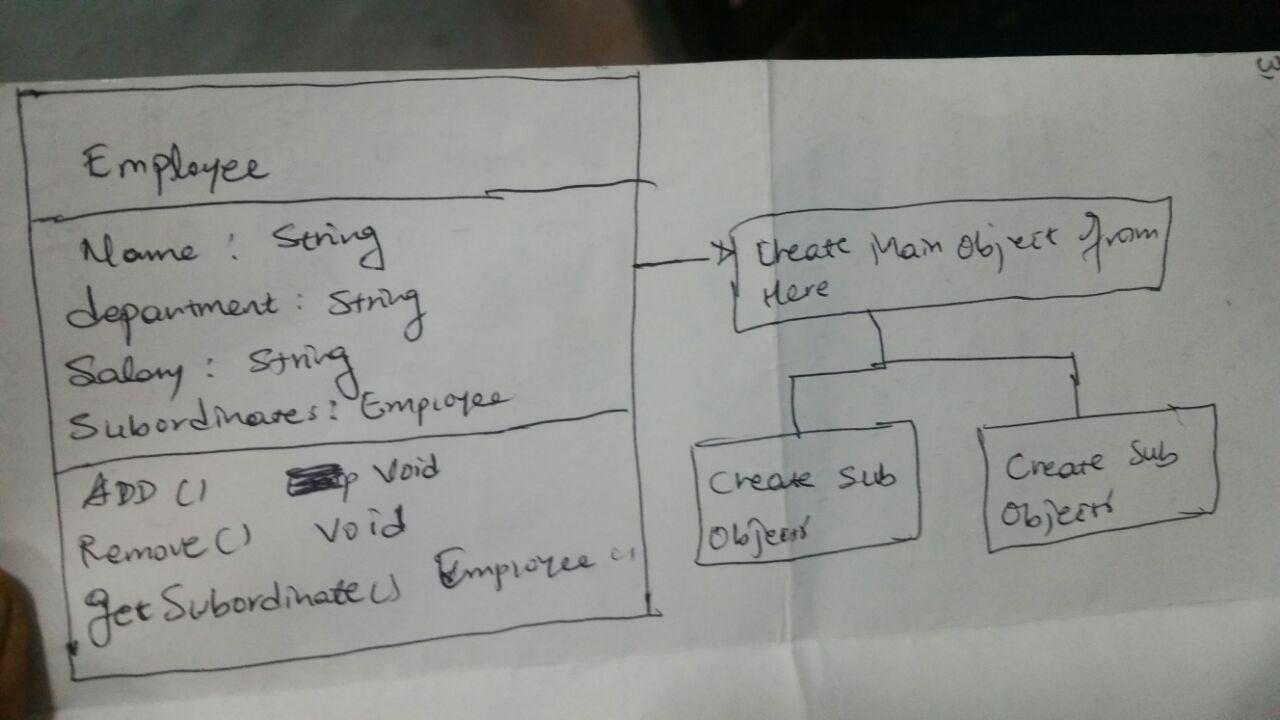 Employee
Name : String
department : String
Salary : String
Subordinates : Employee
ADD () Void
Remove () Void
getSubordinate () Employee ()
Create Main Object from
Here
Create Sub
Objects
Create Sub
Objects